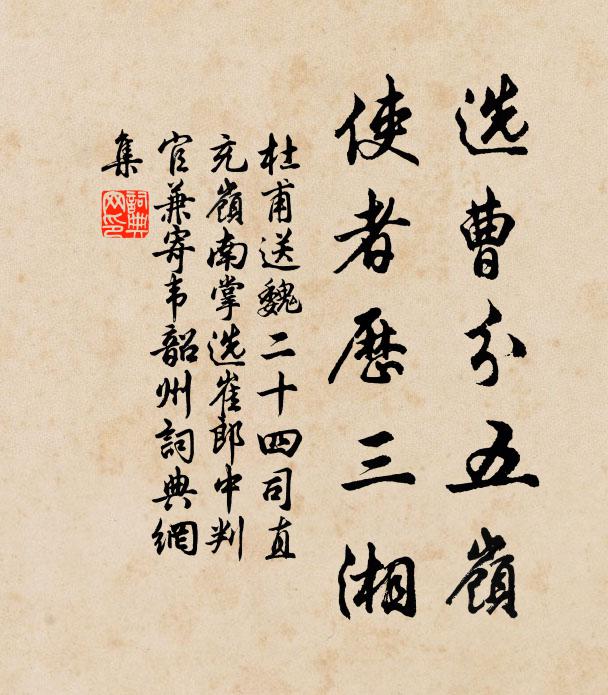 选曹分五嶺
使者歷三湘
杜甫送魏二十四司直
充嶺南掌选崔郎中判
官兼寄韦韶州詞典網
集
詞典
网印